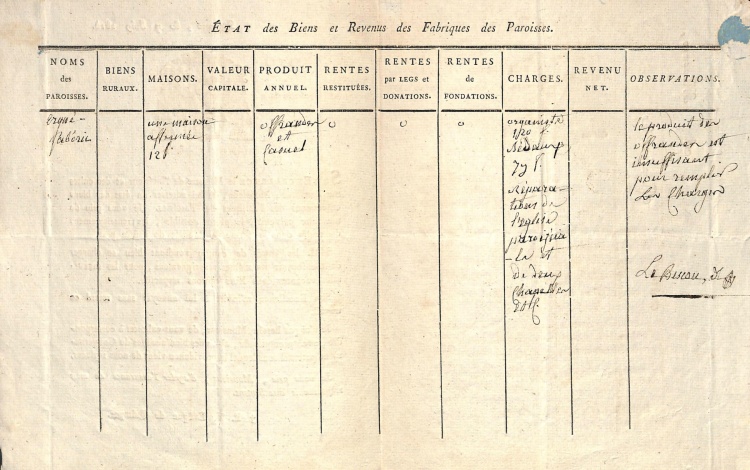 ÉTAT des Biens et Revenus des Fabriques des Paroisses.
NOMS
des
PAROISSES.
BIENS
RURAUX.
MAISONS.
VALEUR
CAPITALE.
PRODUIT
ANNUEL.
RENTES
RESTITUÉES.
RENTES
par LEGS et
DONATIONS.
RENTES
de
FONDATIONS.
CHARGES.
REVENU
NET.
OBSERVATIONS.
ergué-
gabéric
une maison
affermée
12 f.
offrandes
et
Casuel
0
0
0
organiste
120 f.
79 f.
répara-
tions de
l'eglise
paroissia
-le et
de deux
Chapelles
le produit des
offrandes est
insuffisant
pour remplir
les Charges